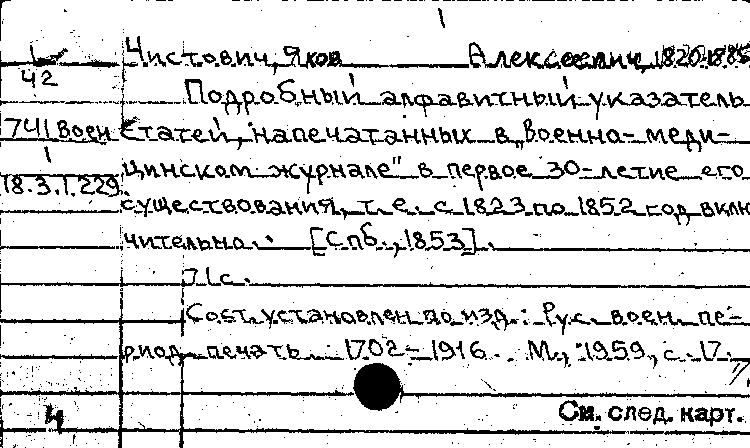 1
1 Чистович, Яков Алексеевич, 1820-1885
42
Подробный алфавитный указатель
741 Воен статей, напечатанных в „Военно-меди-
1 цинском журнале" в первое 30-летие его
18.3.1.229. существования, т. е. с 1823 по 1852 год вклю
чительно. [Спб., 1853].
71 с.
Сост. установлен по изд.: Рус. воен. пе-
риод. печать. 1702-1916. М., 1959, с. 17.
4 См. след. карт.